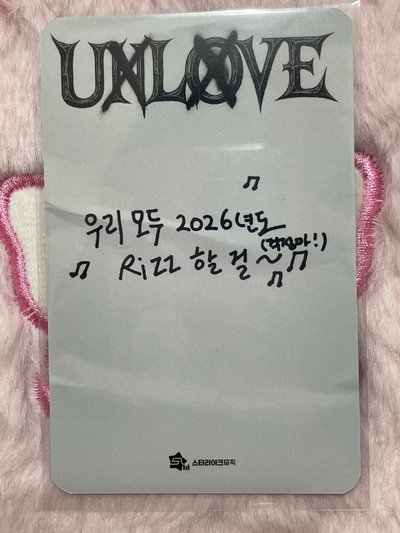 UNLOVE
우리 모두 2026년도
Rizz 할 걸~ (걱정마!)
스타라이크뮤직